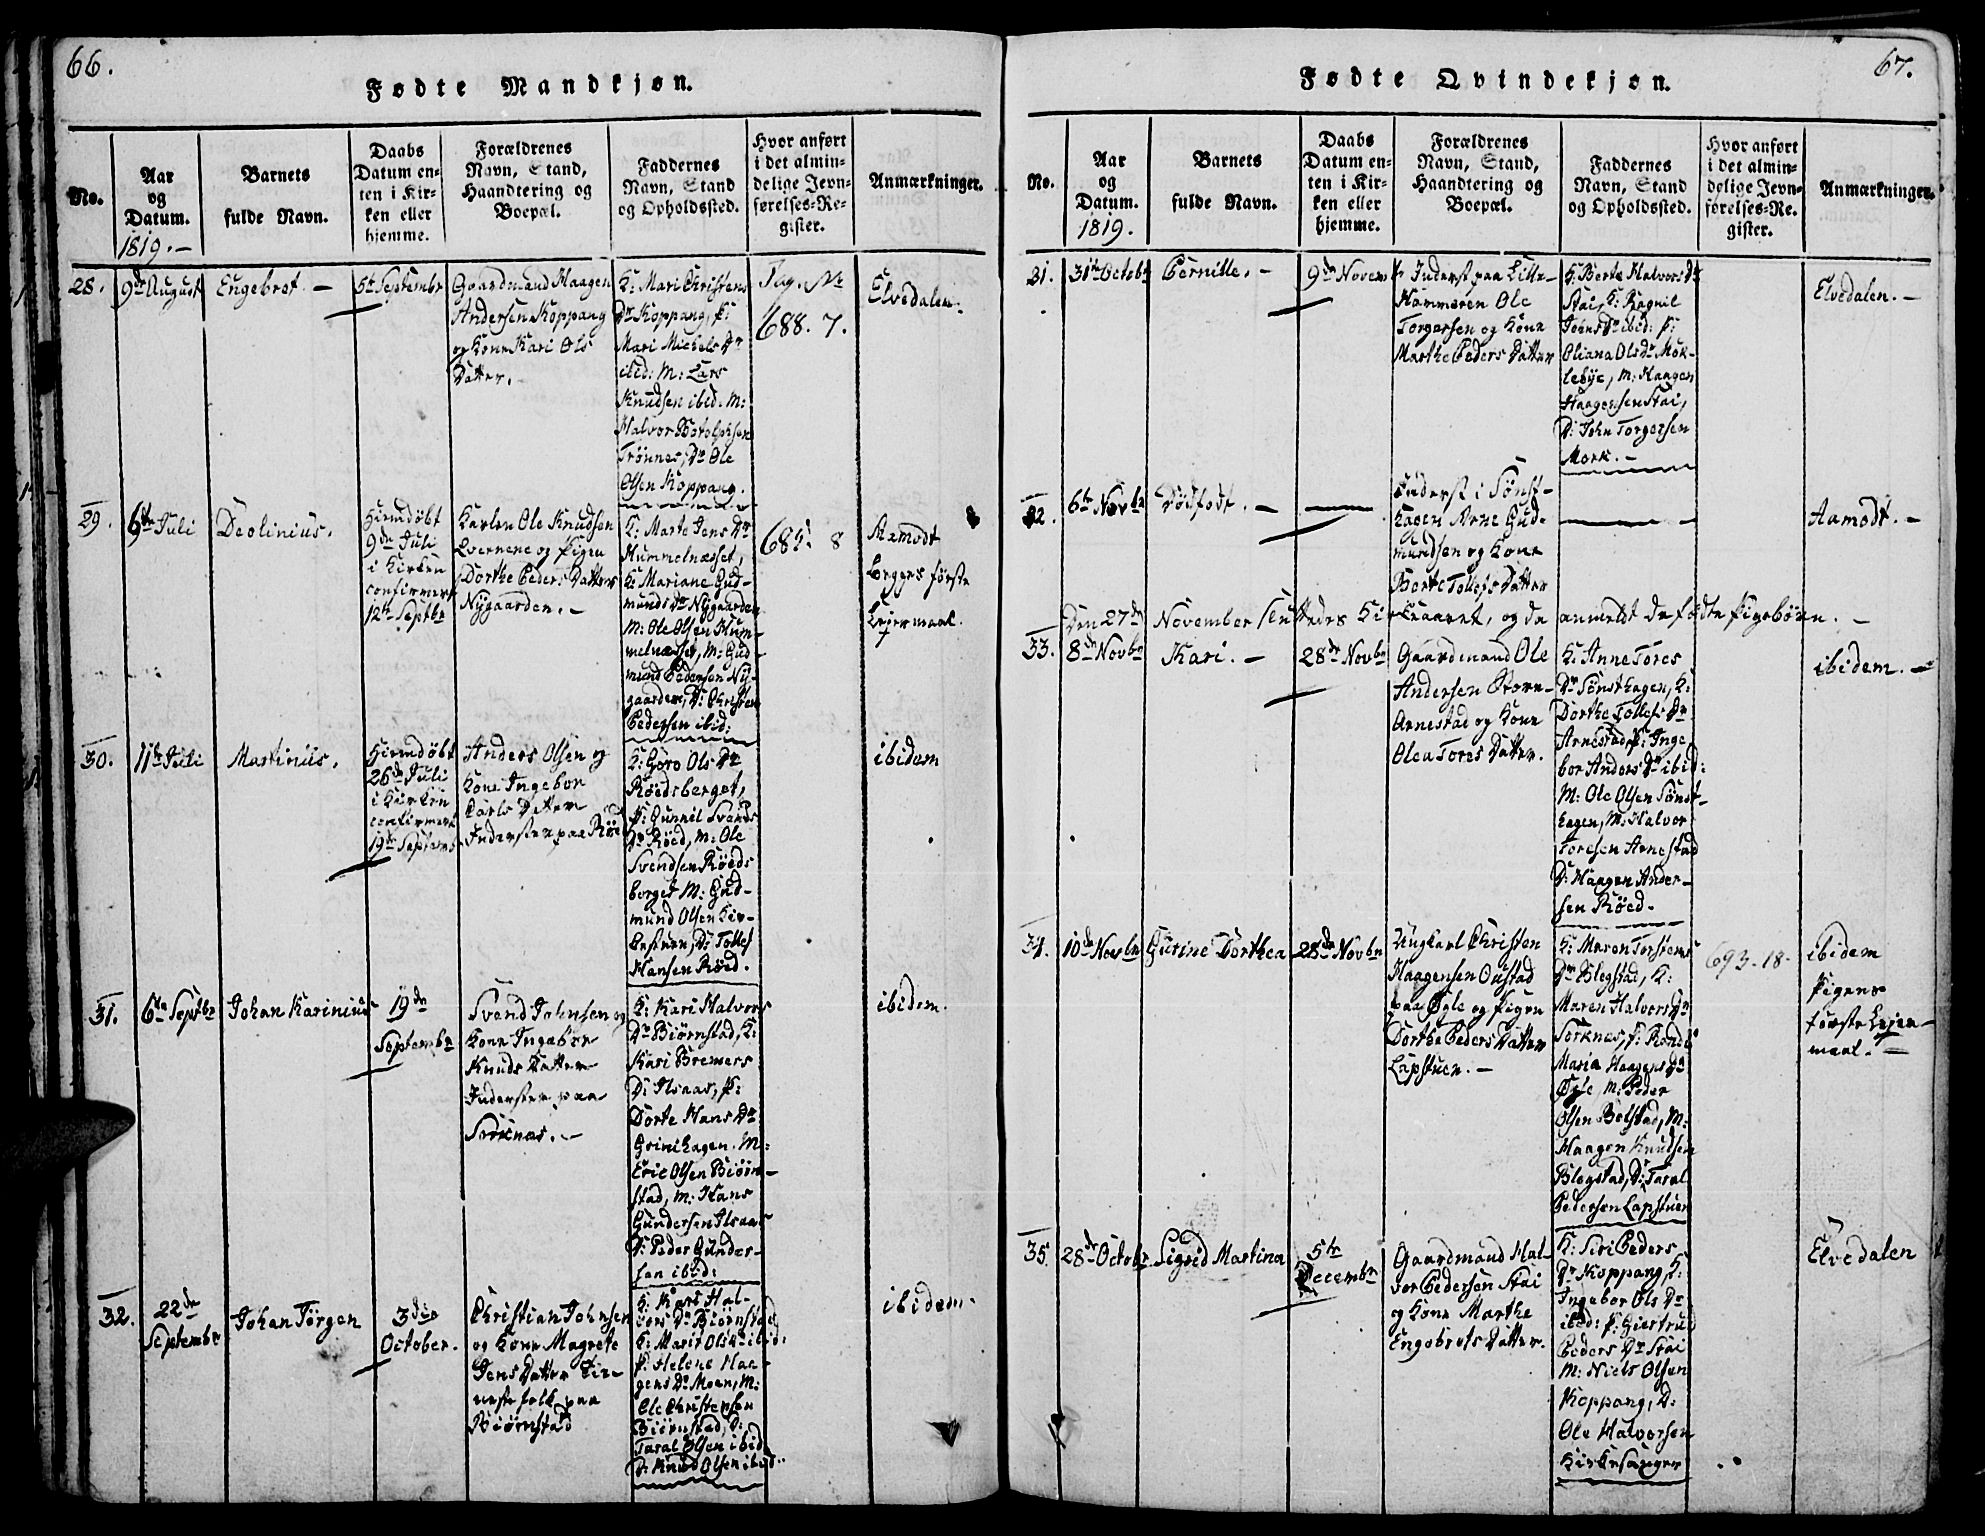 66.
Fødte Mandkjøn.
No.
Aar
og
Datum.
1819.-
Barnets
fulde Navn.
Daabs
Datum en-
ten i Kir-
ken eller
hjemme.
Forældrenes
Navn, Stand,
Haandtering og
Boepæl.
Faddernes
Navn, Stand
og Opholdssted.
Hvor anført
i det almin-
delige Jevn-
førelses-Re-
gister.
Anmærkninger.
28.
9de August
Engebret. -
5te Septembr
Gaardmand Haagen
Andersen Koppang
og Kone Kari Ols
Datter.
K: Mari Christens
Dr Koppang, P:
Mari Michels Dr
ibid: M: Lars
Knudsen ibid. M:
Halvor Botolphsen
Trönnes, Dr Ole
Olsen Koppang.
Pag. No
688. 7.
Elvedalen.
29.
6te Juli
Deolinius.
Hiemdöbt
9de Juli
i Kirken
confirmert
12te Septbr
Karlen Ole Knudsen
og Pigen
Dorthe Peders Datter
Nygaarden. -
K: Marte Jens Dr
Hummelnæsset,
K: Mariane Gud-
munds Dr Nygaarden
M: Ole Olsen Hum-
melnæsset, M: Gud-
mund Pedersen Ny-
gaarden, D: Christen
Pedersen ibid:
685. 8
Aamodt
Begges første
Leiermaal.
30.
11te Juli
Martinius.
Hiemdöbt
26de Juli
i Kirken
confirmert
19de Septembr
Anders Olsen og
Kone Ingebor
Carls Datter
Inderster paa Röed
K: Goro Ols Dr
Röedsberget,
P: Gunnil Svends
Dr Röed, M: Ole
Svendsen Röeds
berget M: Gud-
mund Olsen Kir-
D: Tollef
Hansen Röed.
ibidem
31.
6te Septbr
Johan Karinius
19de
Septembr
Svend Johnsen og
Kone Ingebor
Knuds Datter
Inderster paa
Sorknes. -
K: Kari Halvors
Dr Biørnstad, K:
Kari Bremers
D: Ilsaas, P:
Dorte Hans Dr
Grinihagen. M:
Eric Olsen Biørn-
stad, M: Hans
Gundersen Ilsaas
D: Peder Gunder-
sen ibid:
ibidem.
32.
22de
Septembr
Johan Jørgen
3die
October.
Christian Johnsen
og Kone Magrete
Jens Datter Tie-
nestefolk paa
Biörnstad
K: Kari Hal-
vors Dr Biørnstad
K: Marit Ols Dr ibid:
P: Helene Haa-
gens Dr Moen, M:
Ole Christensen
Biörnstad, D:
Taral Olsen ibid
D: Knud Olsen ibid.
ibidem.
67.
Fødte Qvindekjøn.
No.
Aar
og
Datum.
1819.
Barnets
fulde Navn.
Daabs
Datum en-
ten i Kir-
ken eller
hjemme.
Forældrenes
Navn, Stand,
Haandtering og
Boepæl.
Faddernes
Navn, Stand
og Opholdssted.
Hvor anført
i det almin-
delige Jevn-
førelses-Re.
gister.
Anmærkninger.
31.
31te Octobr
Pernille. -
9de Novem
Inderst paa Lille-
Hammeren Ole
Torgersen og Kone
Marthe Peders Datter
K: Berte Halvors Dr
Stai, K: Ragnil
Johns Dr ibid: P:
Oliana Ols Dr Mök-
lebye, M: Haagen
Haagensen Stai,
D: John Torgersen
Mork. -
Elvedalen. -
32.
6te Novbr
Dödfödt. -
Inderst i Sönst-
hagen Arne Gud-
mundsen og Kone
Berte Tollefs Datter
Aamodt. -
Den 27de November sluttedes Kirkeaaret, og da anmeldt de födte Pigebörn. -
33.
8de Novbr
Kari. -
28de Novbr
Gaardmand Ole
Andersen Store-
Arnestad og Kone
Olea Tores Datter.
K: Anne Tores
Dr Sønsthagen, K:
Dorthe Tollefs Dr
Arnestad, P: Inge
bor Anders Dr ibid:
M: Ole Olsen Sönst-
hagen, M: Halvor
Toresen Arnestad
D: Haagen Ander-
sen Röed.
ibidem. -
34.
10de Novbr
Gurine Dorthea
28de Novbr
Ungkarl Christen
Haagensen Oustad
paa Ögle og Pigen
Dorthe Peders Datter
Lapstuen. -
K: Maren Torstens
Dr Blegstad, K:
Maren Halvors Dr
Sorknes, P: Ronde
Maria Haagens Dr
Ögle, M: Peder
Olsen Bolstad, M:
Haagen Knudsen
Blegstad, D: Taral
Pedersen Lapstuen
693. 18.
ibidem
Pigens
første Leier-
maal. -
35.
28de Octobr
Sigrid Martina
5te
Decembr
Gaardmand Hal-
vor Pedersen Stai
og Kone Marthe
Engebrets Datter.
K: Siri Peders
Dr Koppang, K:
Ingebor Ols Dr
ibid: P: Giertrud
Peders Dr Stai
M: Niels Olsen
Koppang, D:
Ole Halvorsen
Kirkesanger
Elvedalen